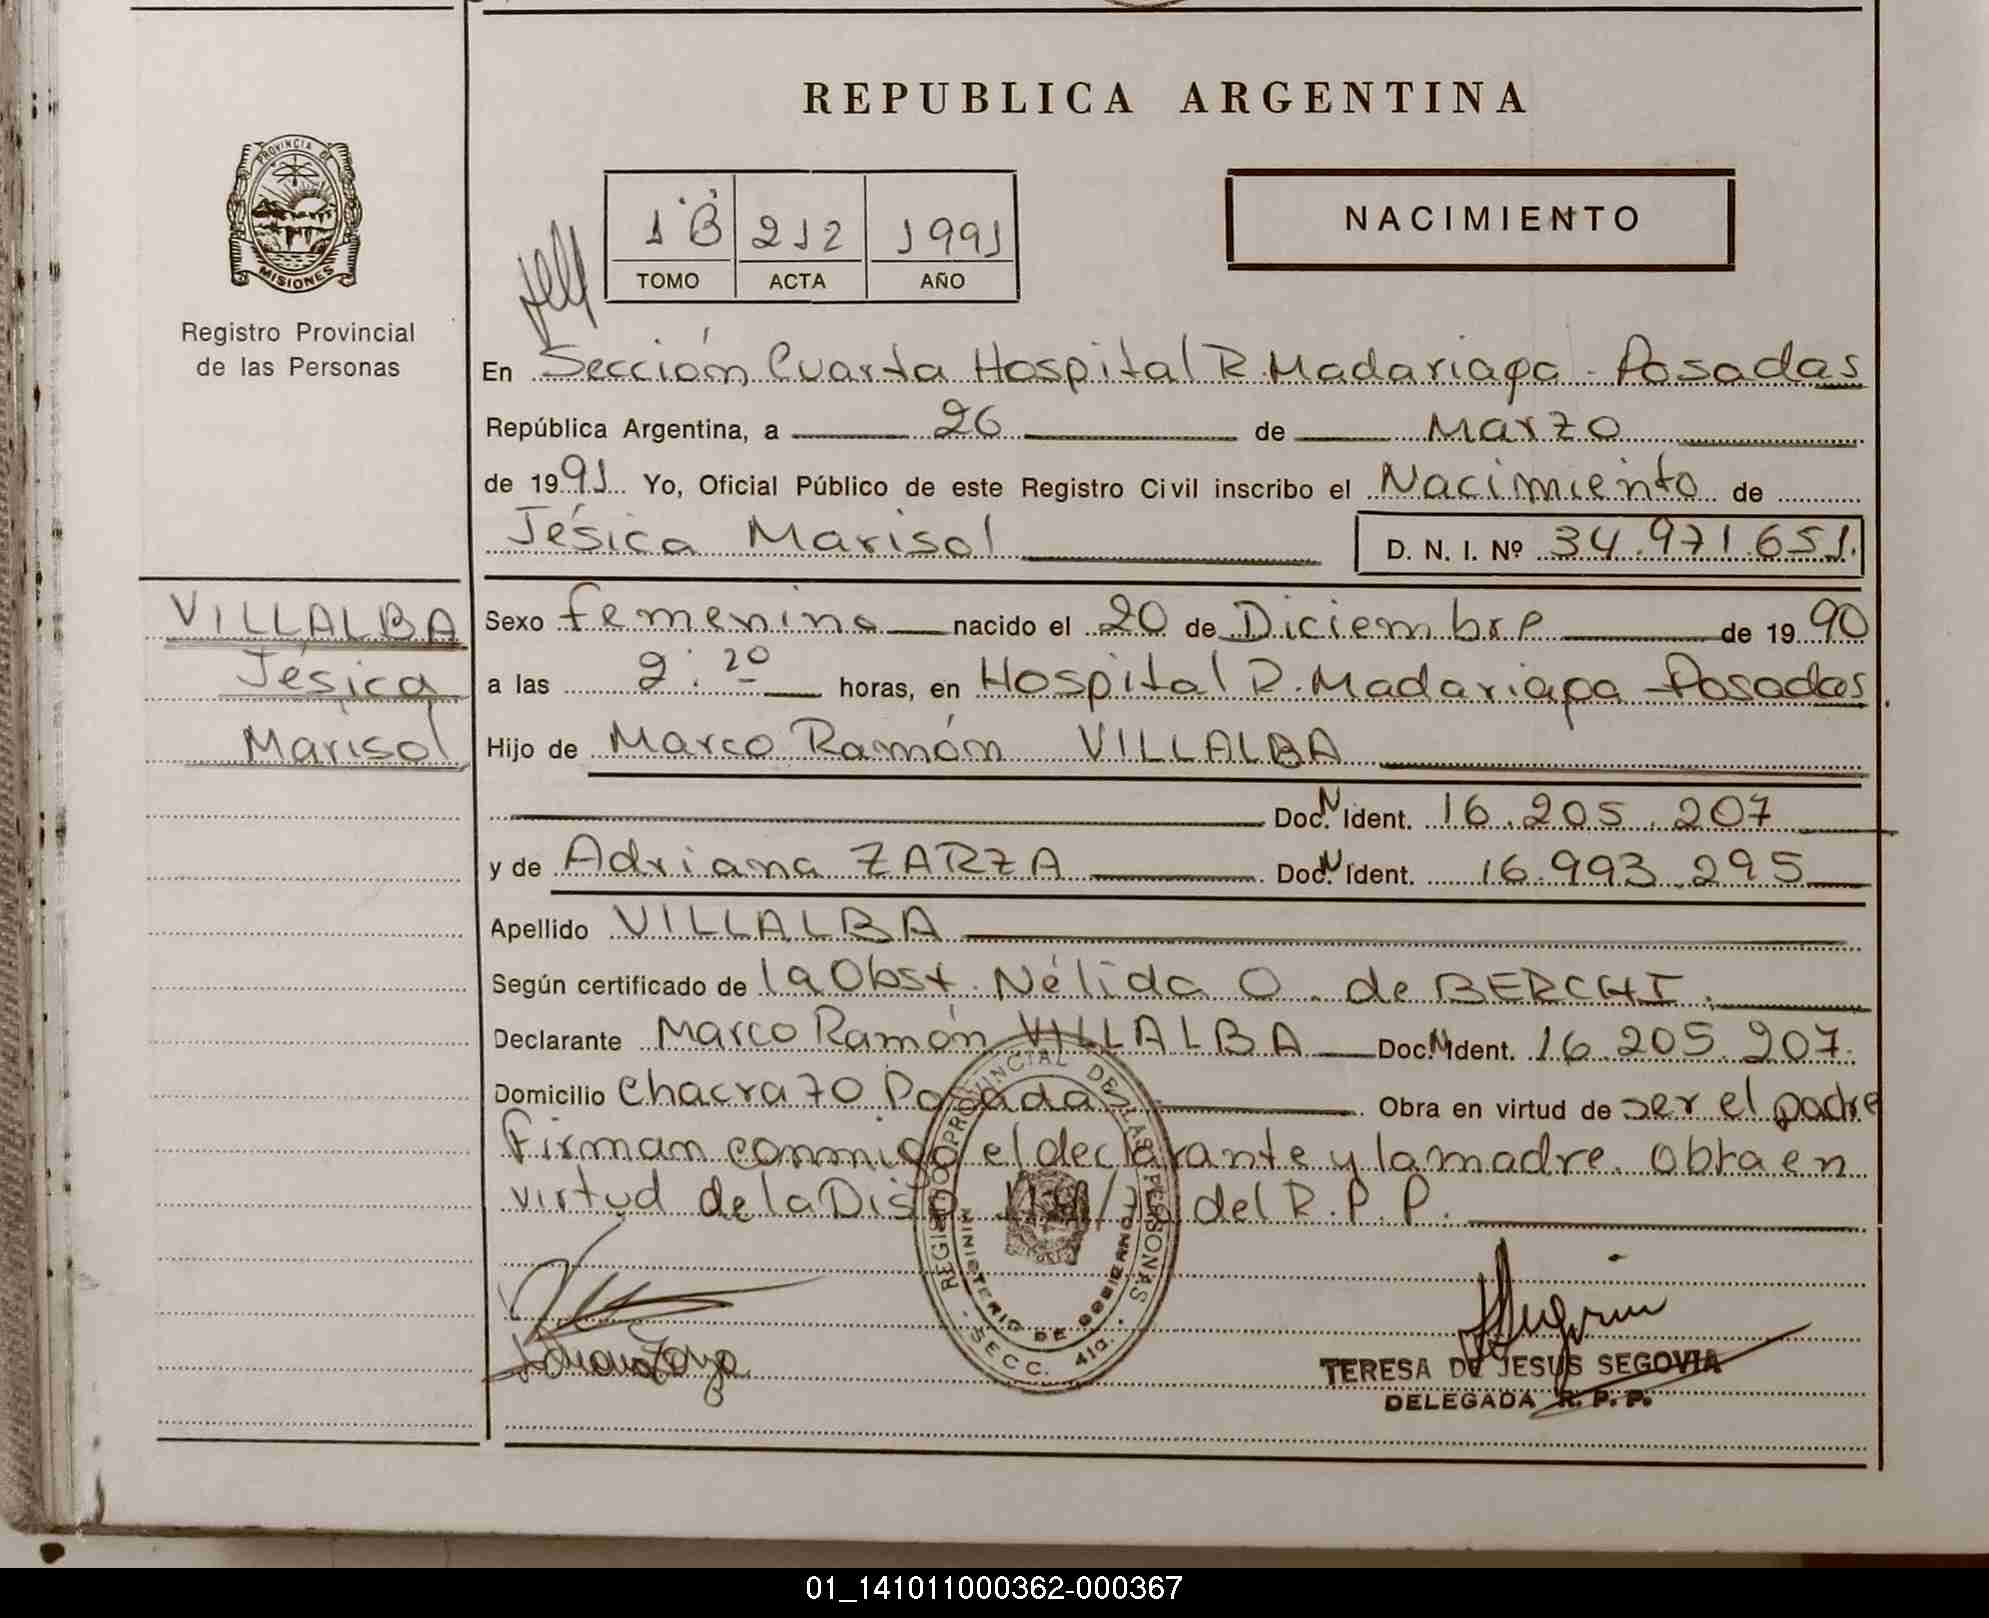 REPUBLICA ARGENTINA
PROVINCIA DE
MISIONES
Registro Provincial
de las Personas
1º B 212 1991
TOMO ACTA AÑO
NACIMIENTO
En Sección Cuarta Hospital R. Madariaga - Posadas
República Argentina, a 26 de Marzo
de 1991 Yo, Oficial Público de este Registro Civil inscribo el Nacimiento de
Jésica Marisol D. N. I. Nº 34.971.651.
VILLALBA
Jésica
Marisol
Sexo femenino nacido el 20 de Diciembre de 1990
a las 2:20 horas, en Hospital R. Madariaga - Posadas.
Hijo de Marco Ramón VILLALBA
Doc. N. Ident. 16.205.207
y de Adriana ZARZA Doc. N. Ident. 16.993.295
Apellido VILLALBA
Según certificado de la Obst. Nélida O. de BERCHI.
Declarante Marco Ramón VILLALBA Doc. N. Ident. 16.205.207.
Domicilio Chacra 70 Posadas Obra en virtud de ser el padre
Firman conmigo el declarante y la madre. Obra en
virtud de la Disp. del R.P.P.
REGISTRO PROVINCIAL DE LAS PERSONAS
MINISTERIO DE GOBIERNO
- SECC. 4ta. -
TERESA DE JESUS SEGOVIA
DELEGADA R. P. P.
01_141011000362-000367